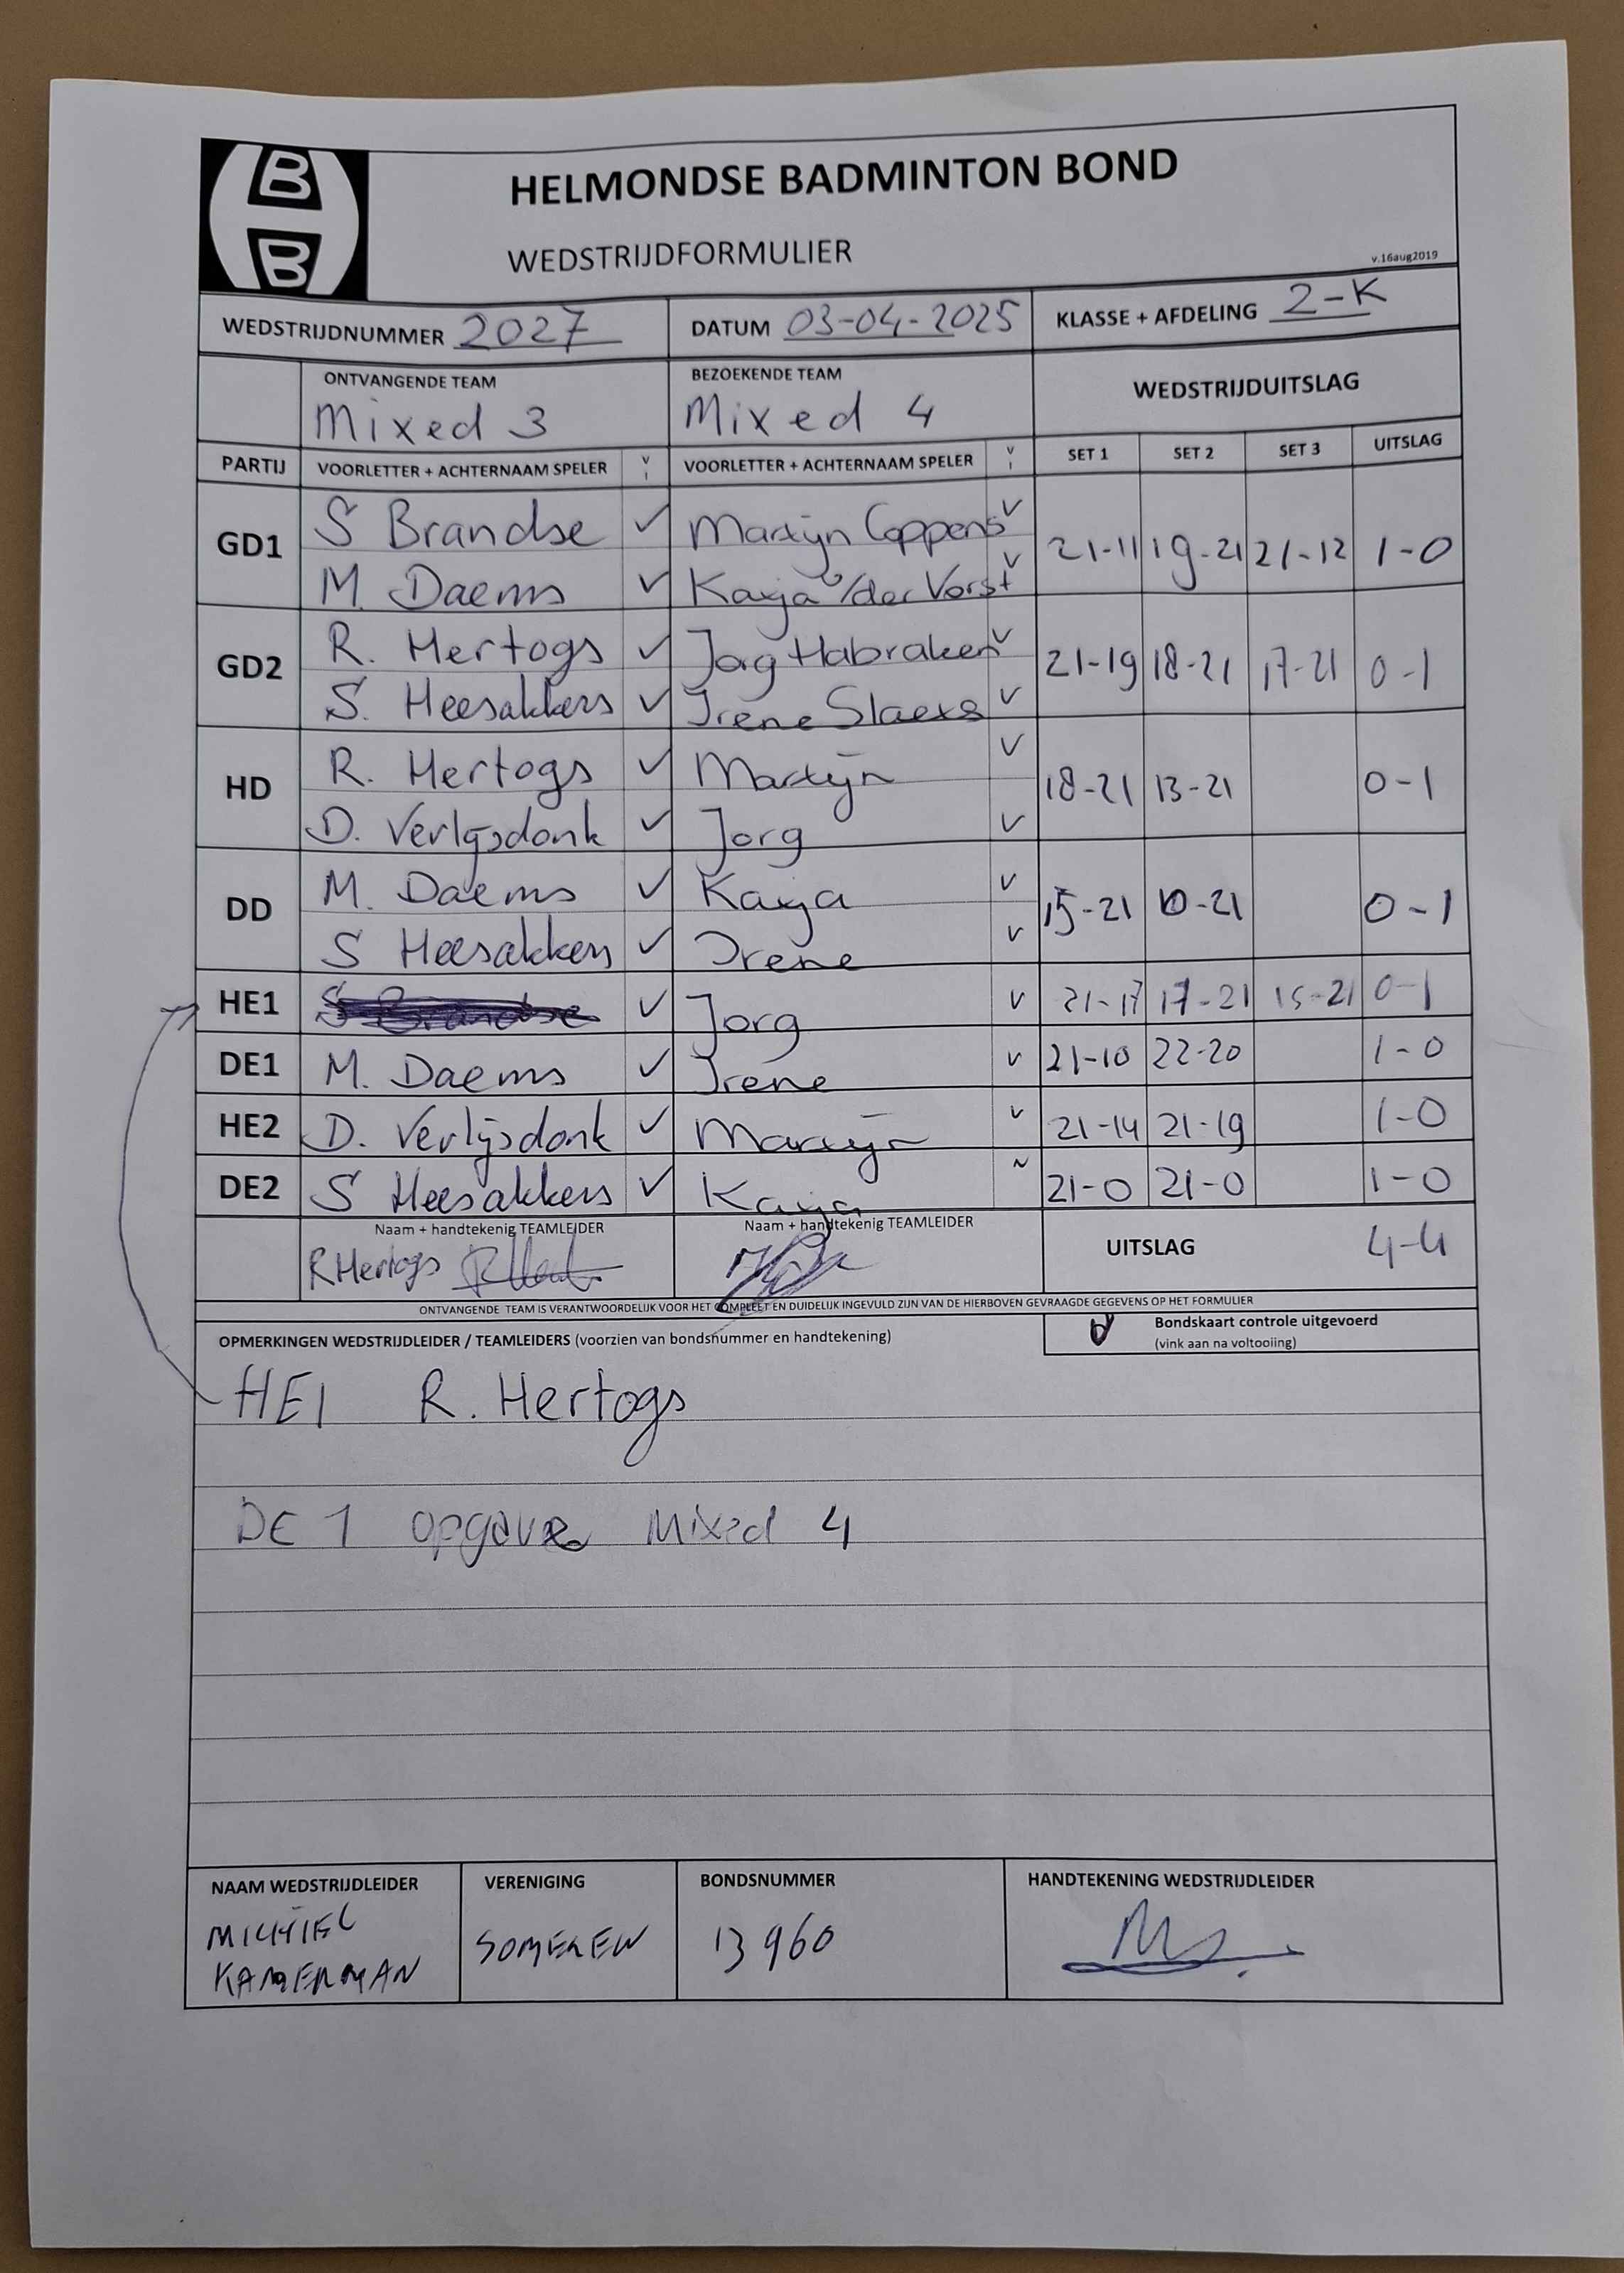 B
B
HELMONDSE BADMINTON BOND
WEDSTRIJDFORMULIER
v.16aug2019
WEDSTRIJDNUMMER 2027 DATUM 03-04-2025 KLASSE + AFDELING 2-K
ONTVANGENDE TEAM BEZOEKENDE TEAM WEDSTRIJDUITSLAG
Mixed 3 Mixed 4
PARTIJ VOORLETTER + ACHTERNAAM SPELER V I VOORLETTER + ACHTERNAAM SPELER V I SET 1 SET 2 SET 3 UITSLAG
GD1 S Brandse ✓ Martijn Coppens ✓ 21-11 19-21 21-12 1-0
M. Daems ✓ Kayja v/der Vorst ✓
GD2 R. Hertogs ✓ Jorg Habraken ✓ 21-19 18-21 17-21 0-1
S. Heesakkers ✓ Irene Slaets ✓
HD R. Hertogs ✓ Martijn ✓ 18-21 13-21 0-1
D. Verlijsdonk ✓ Jorg ✓
DD M. Daems ✓ Kayja ✓ 15-21 10-21 0-1
S Heesakkers ✓ Irene ✓
HE1 S Brandse ✓ Jorg ✓ 21-17 17-21 15-21 0-1
DE1 M. Daems ✓ Irene ✓ 21-10 22-20 1-0
HE2 D. Verlijsdonk ✓ Martijn ✓ 21-14 21-19 1-0
DE2 S Heesakkers ✓ Kayja ✓ 21-0 21-0 1-0
Naam + handtekenig TEAMLEIDER Naam + handtekenig TEAMLEIDER UITSLAG 4-4
R Hertogs
ONTVANGENDE TEAM IS VERANTWOORDELIJK VOOR HET COMPLEET EN DUIDELIJK INGEVULD ZIJN VAN DE HIERBOVEN GEVRAAGDE GEGEVENS OP HET FORMULIER
OPMERKINGEN WEDSTRIJDLEIDER / TEAMLEIDERS (voorzien van bondsnummer en handtekening)
Bondskaart controle uitgevoerd
(vink aan na voltooiing)
HE1 R. Hertogs
DE 1 opgave Mixed 4
NAAM WEDSTRIJDLEIDER VERENIGING BONDSNUMMER HANDTEKENING WEDSTRIJDLEIDER
MICHIEL
KAMERMAN SOMEREN 13960